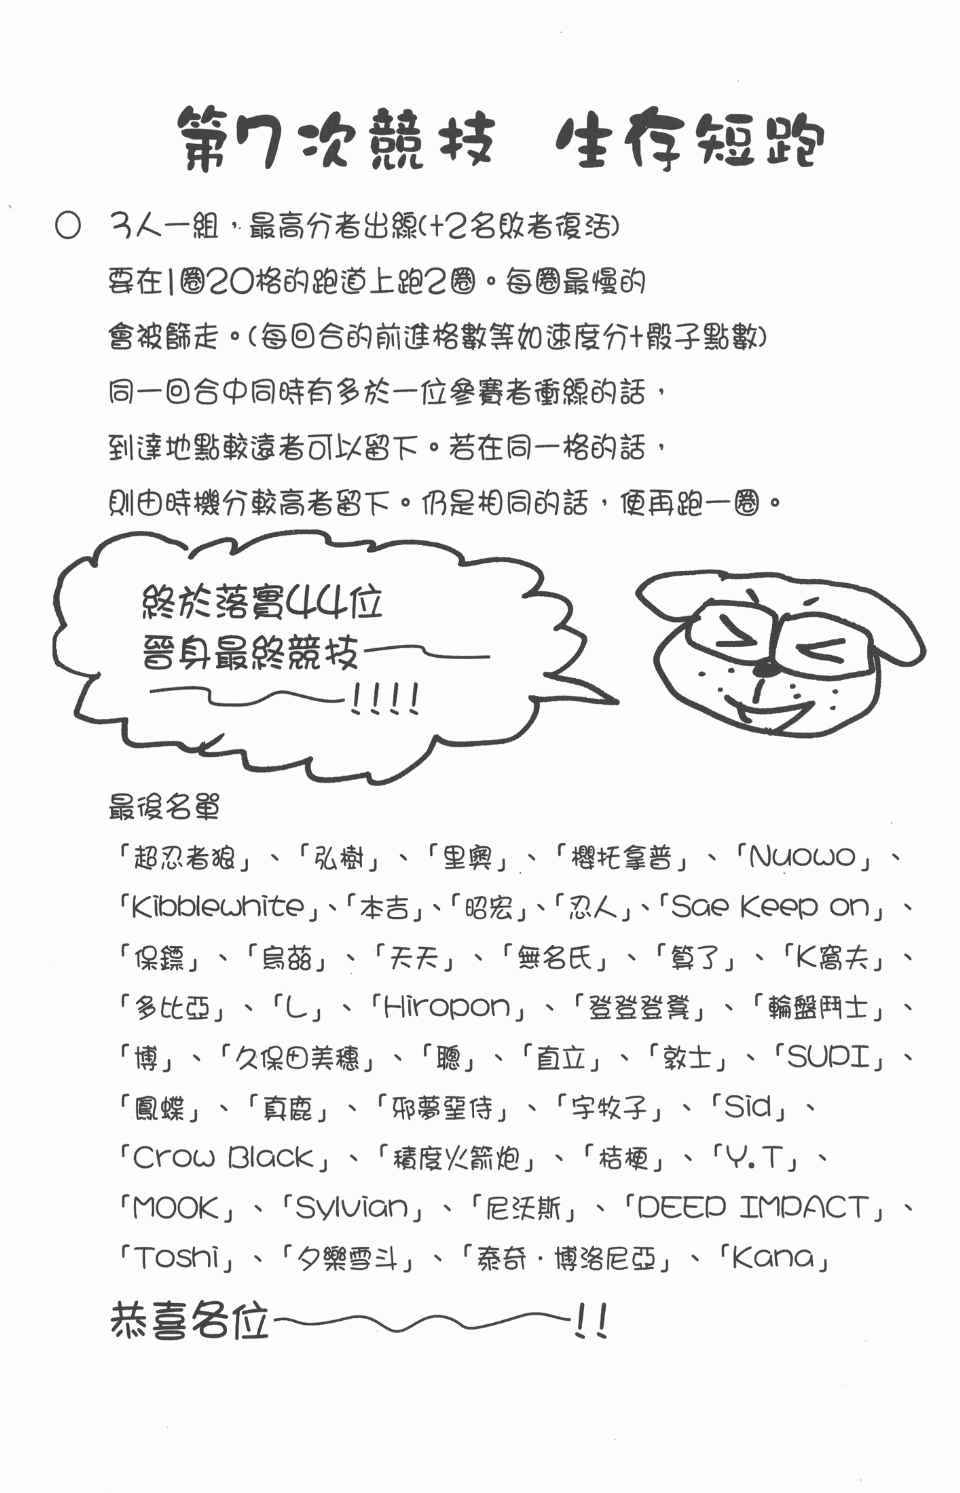 第7次競技 生存短跑
○ 3人一組，最高分者出線(+2名敗者復活)
要在1圈20格的跑道上跑2圈。每圈最慢的
會被篩走。(每回合的前進格數等如速度分+骰子點數)
同一回合中同時有多於一位參賽者衝線的話，
到達地點較遠者可以留下。若在同一格的話，
則由時機分較高者留下。仍是相同的話，便再跑一圈。
終於落實44位
晉身最終競技
!!!!
最後名單
「超忍者狼」、「弘樹」、「里奧」、「櫻托拿普」、「Nuowo」、
「Kibblewhite」、「本吉」、「昭宏」、「忍人」、「Sae Keep on」、
「保鏢」、「烏茲」、「天天」、「無名氏」、「算了」、「K窩夫」、
「多比亞」、「L」、「Hiropon」、「登登登凳」、「輪盤鬥士」、
「博」、「久保田美穗」、「聰」、「直立」、「敦士」、「SUPI」、
「鳳蝶」、「真鹿」、「邪夢堊侍」、「宇牧子」、「Sid」、
「Crow Black」、「積度火箭炮」、「桔梗」、「Y.T」、
「MOOK」、「Sylvian」、「尼沃斯」、「DEEP IMPACT」、
「Toshi」、「夕樂雪斗」、「泰奇·博洛尼亞」、「Kana」
恭喜各位!!